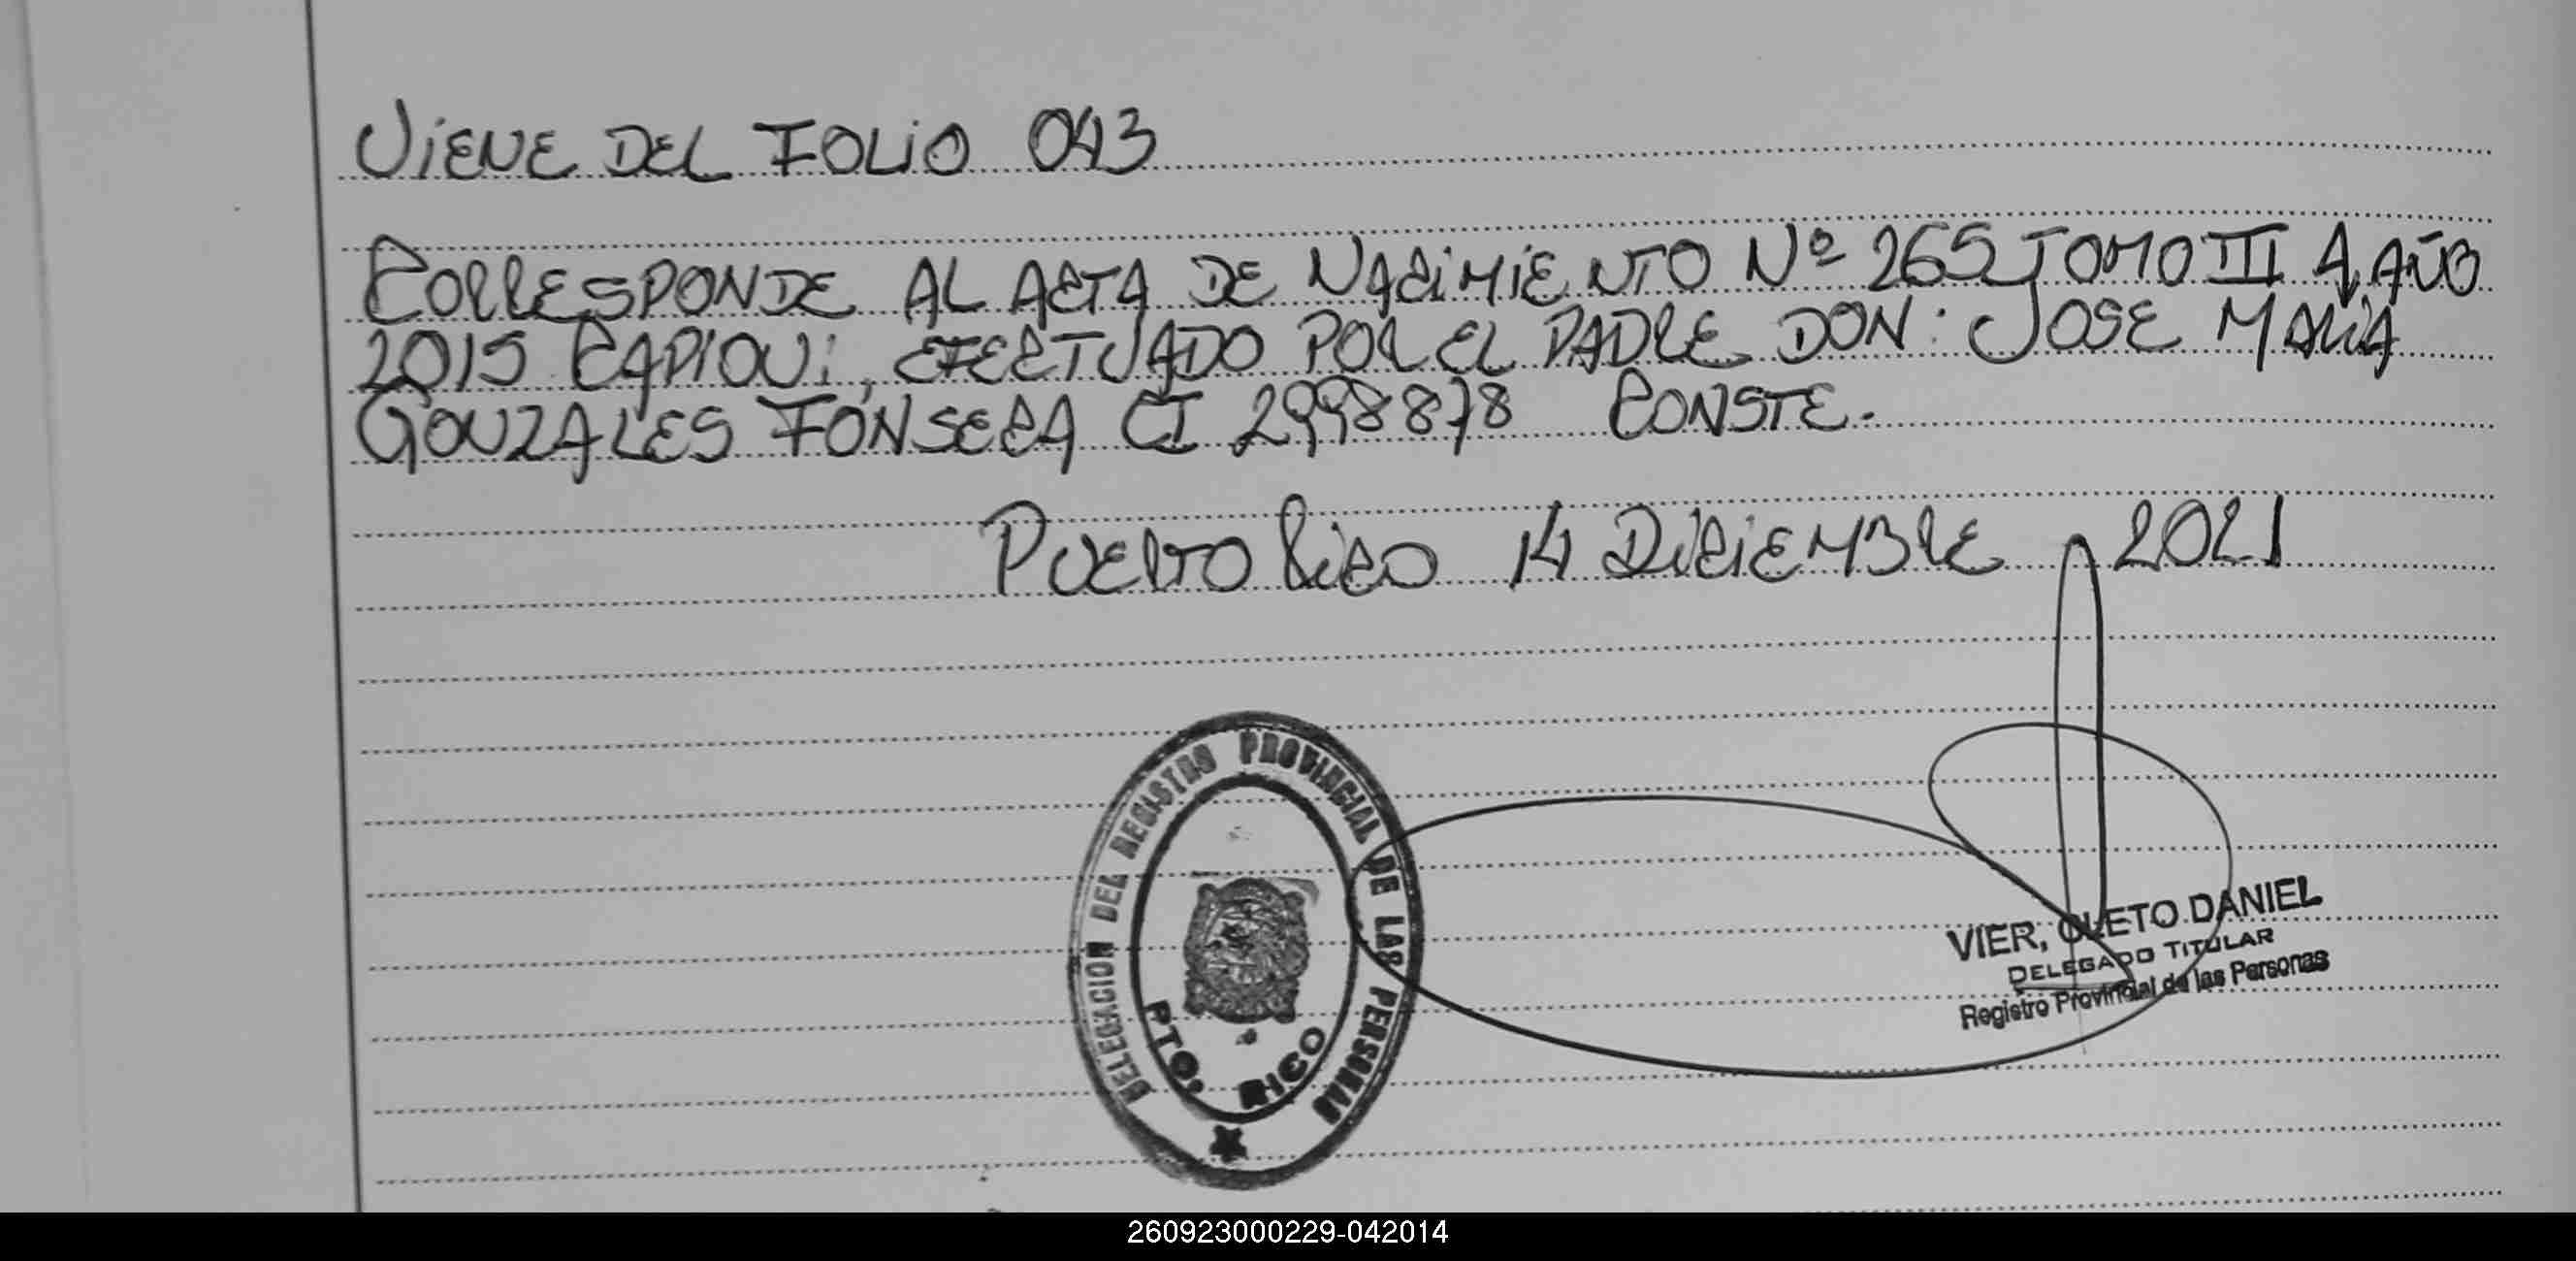 VIENE DEL FOLIO 043
CORRESPONDE AL ACTA DE NACIMIENTO Nº 265 TOMO III A AÑO
2015 CAPIOVI, EFECTUADO POR EL PADRE DON: JOSE MARIA
GONZALES FONSECA CI 2998878 CONSTE.
PUERTO RICO 14 DICIEMBRE 2021
DELEGACION DEL REGISTRO PROVINCIAL DE LAS PERSONAS
PTO. RICO
VIER, CLETO DANIEL
DELEGADO TITULAR
Registro Provincial de las Personas
260923000229-042014